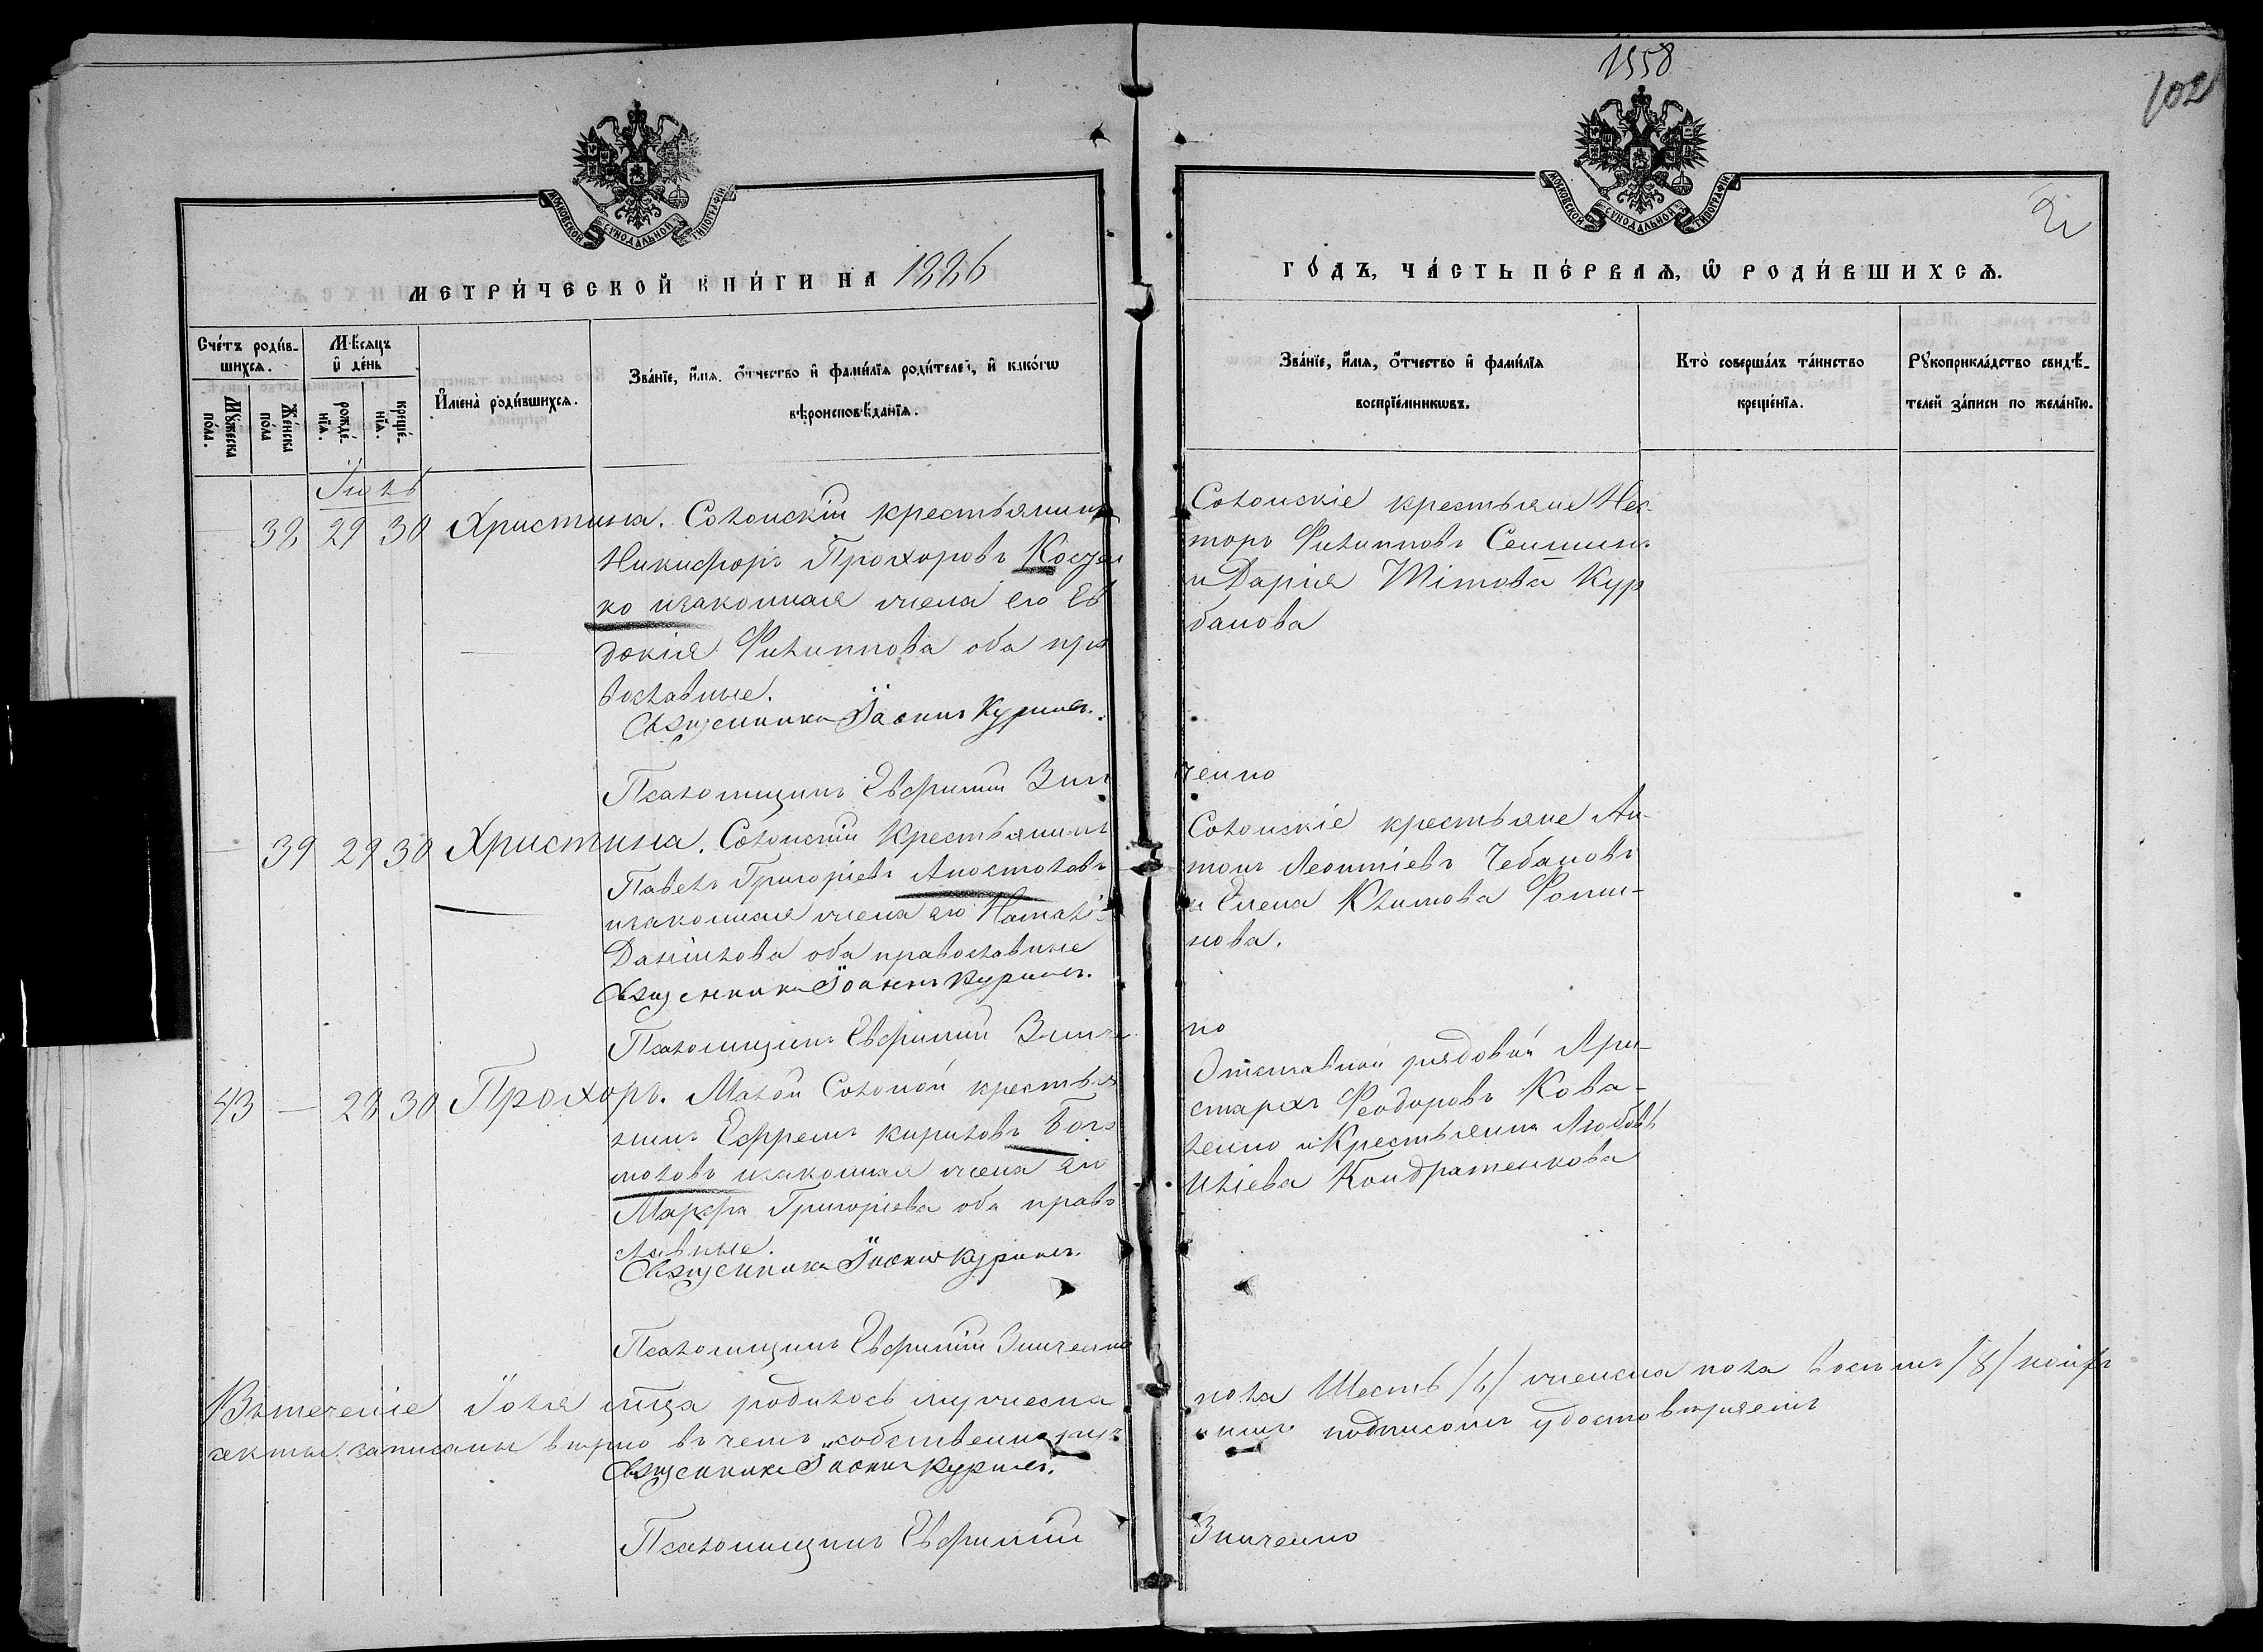 1558
102
2
МОСКОВСКОЙ СѴНОДАЛЬНОЙ ТИПОГРАФІИ
МОСКОВСКОЙ СѴНОДАЛЬНОЙ ТИПОГРАФІИ
МЕТРИ́ЧЕСКОЙ КНИ́ГИ НА 1886
ГО́ДЪ, ЧА́СТЬ ПЕ́РВАѦ, Ѡ РОДИ́ВШИХСѦ.
Сче́тъ роди́в-
шихсѧ.
Мꙋ́жеска по́ла.
Же́нска по́ла
Мѣ́сѧцъ и҆ де́нь
рожде́-нїѧ.
креще́-нїѧ.
И҆мена̀ роди́вшихсѧ.
Зва́нїе, и҆́мѧ, ѻ҆́тчество и҆ фами́лїѧ роди́телей, и҆ како́гѡ
вѣроисповѣ́данїѧ.
Зва́нїе, и҆́мѧ, ѻ҆́тчество и҆ фами́лїѧ
воспрїе́мникѡвъ.
Кто̀ соверша́лъ та́инство
креще́нїѧ.
Рꙋкоприкла́дство свидѣ́-
телей за́писи по жела́нїю.
Іюль
38 29 30 Христина. Солонскій крестьянинъ
Никифоръ Прохоровъ
ко и законная жена его Ев
докія Филиппова оба пра
вославные.
Священникъ Іоаннъ Куриловъ.
Псаломщикъ Евфимій Зин
Солонскіе крестьяне Нес-
торъ Филипповъ
и Дарія Тітова Кур
банова
ченко
39 29 30 Христина. Солонскій крестьянинъ
Павелъ Григоріевъ Апостоловъ
и законная жена его Наталі
Данилова оба православные
Священникъ Іоаннъ Куриловъ.
Псаломщикъ Евфимій Зинче
Солонскіе крестьяне Ан-
тонъ Леонтіевъ Чебановъ
и Елена Климова Фоми-
нова.
ко
43 — 28 30 Прохоръ. Малой Солоной крестья
нинъ Ефремъ Кириловъ Бого
моловъ и законная жена его
Марфа Григоріева оба право
славные.
Священникъ Іоаннъ Куриловъ.
Псаломщикъ Евфимій Зинченко
Отставной рядовой Ари-
стархъ Феодоровъ Кова-
ленко и крестьянка Любовь
Иліева Кондратенкова
Въ теченіе Іюля мѣсяца родилось мужеска
пола Шесть /6/ женска пола восемь /8/ коихъ
акты записаны вѣрно въ чемъ собственноруч
нымъ подписомъ удостовѣряемъ
Священникъ Іоаннъ Куриловъ.
Псаломщикъ Евфимій
Зинченко